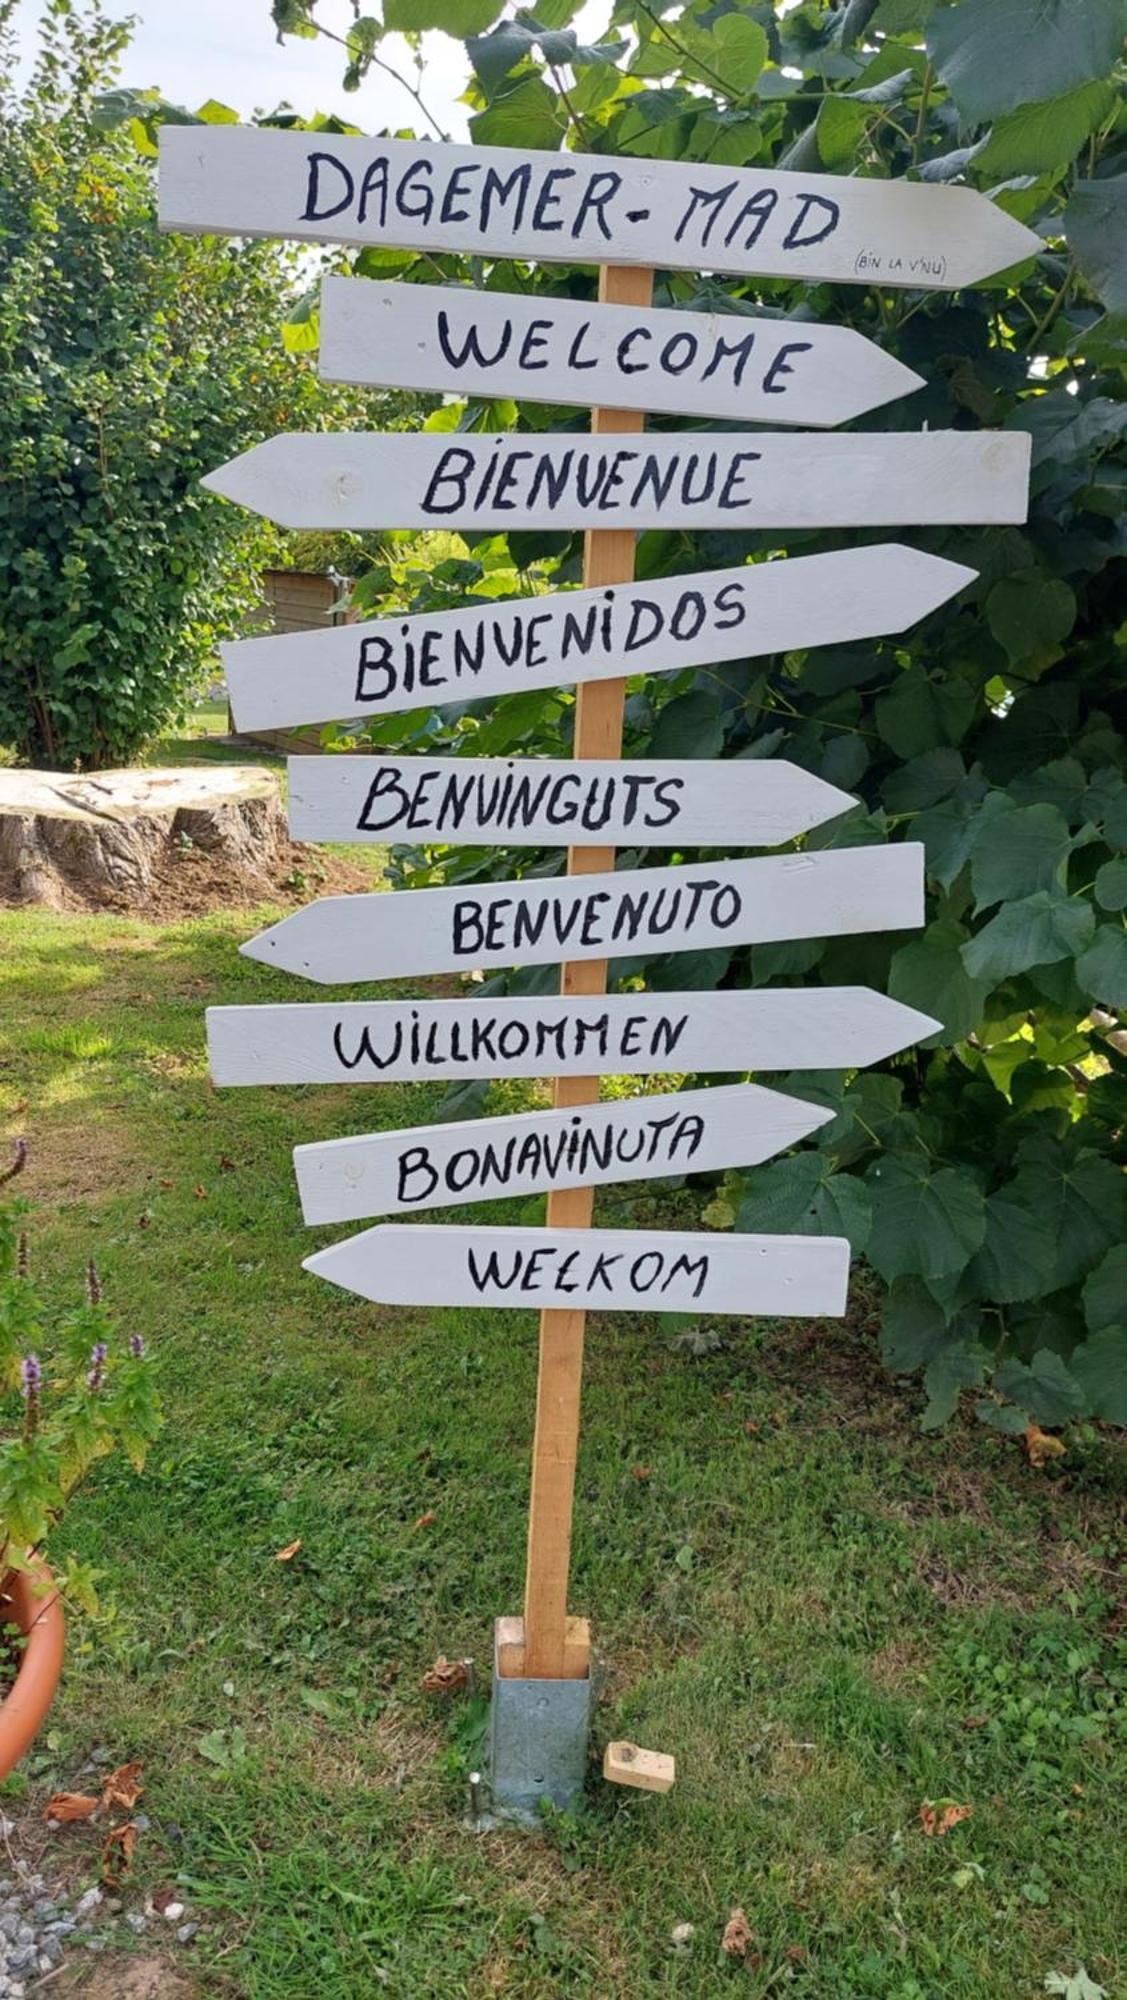 DAGEMER-MAD
(BIN LA V'NU)
WELCOME
BIENVENUE
BIENVENIDOS
BENVINGUTS
BENVENUTO
WILLKOMMEN
BONAVINUTA
WEŁKOM